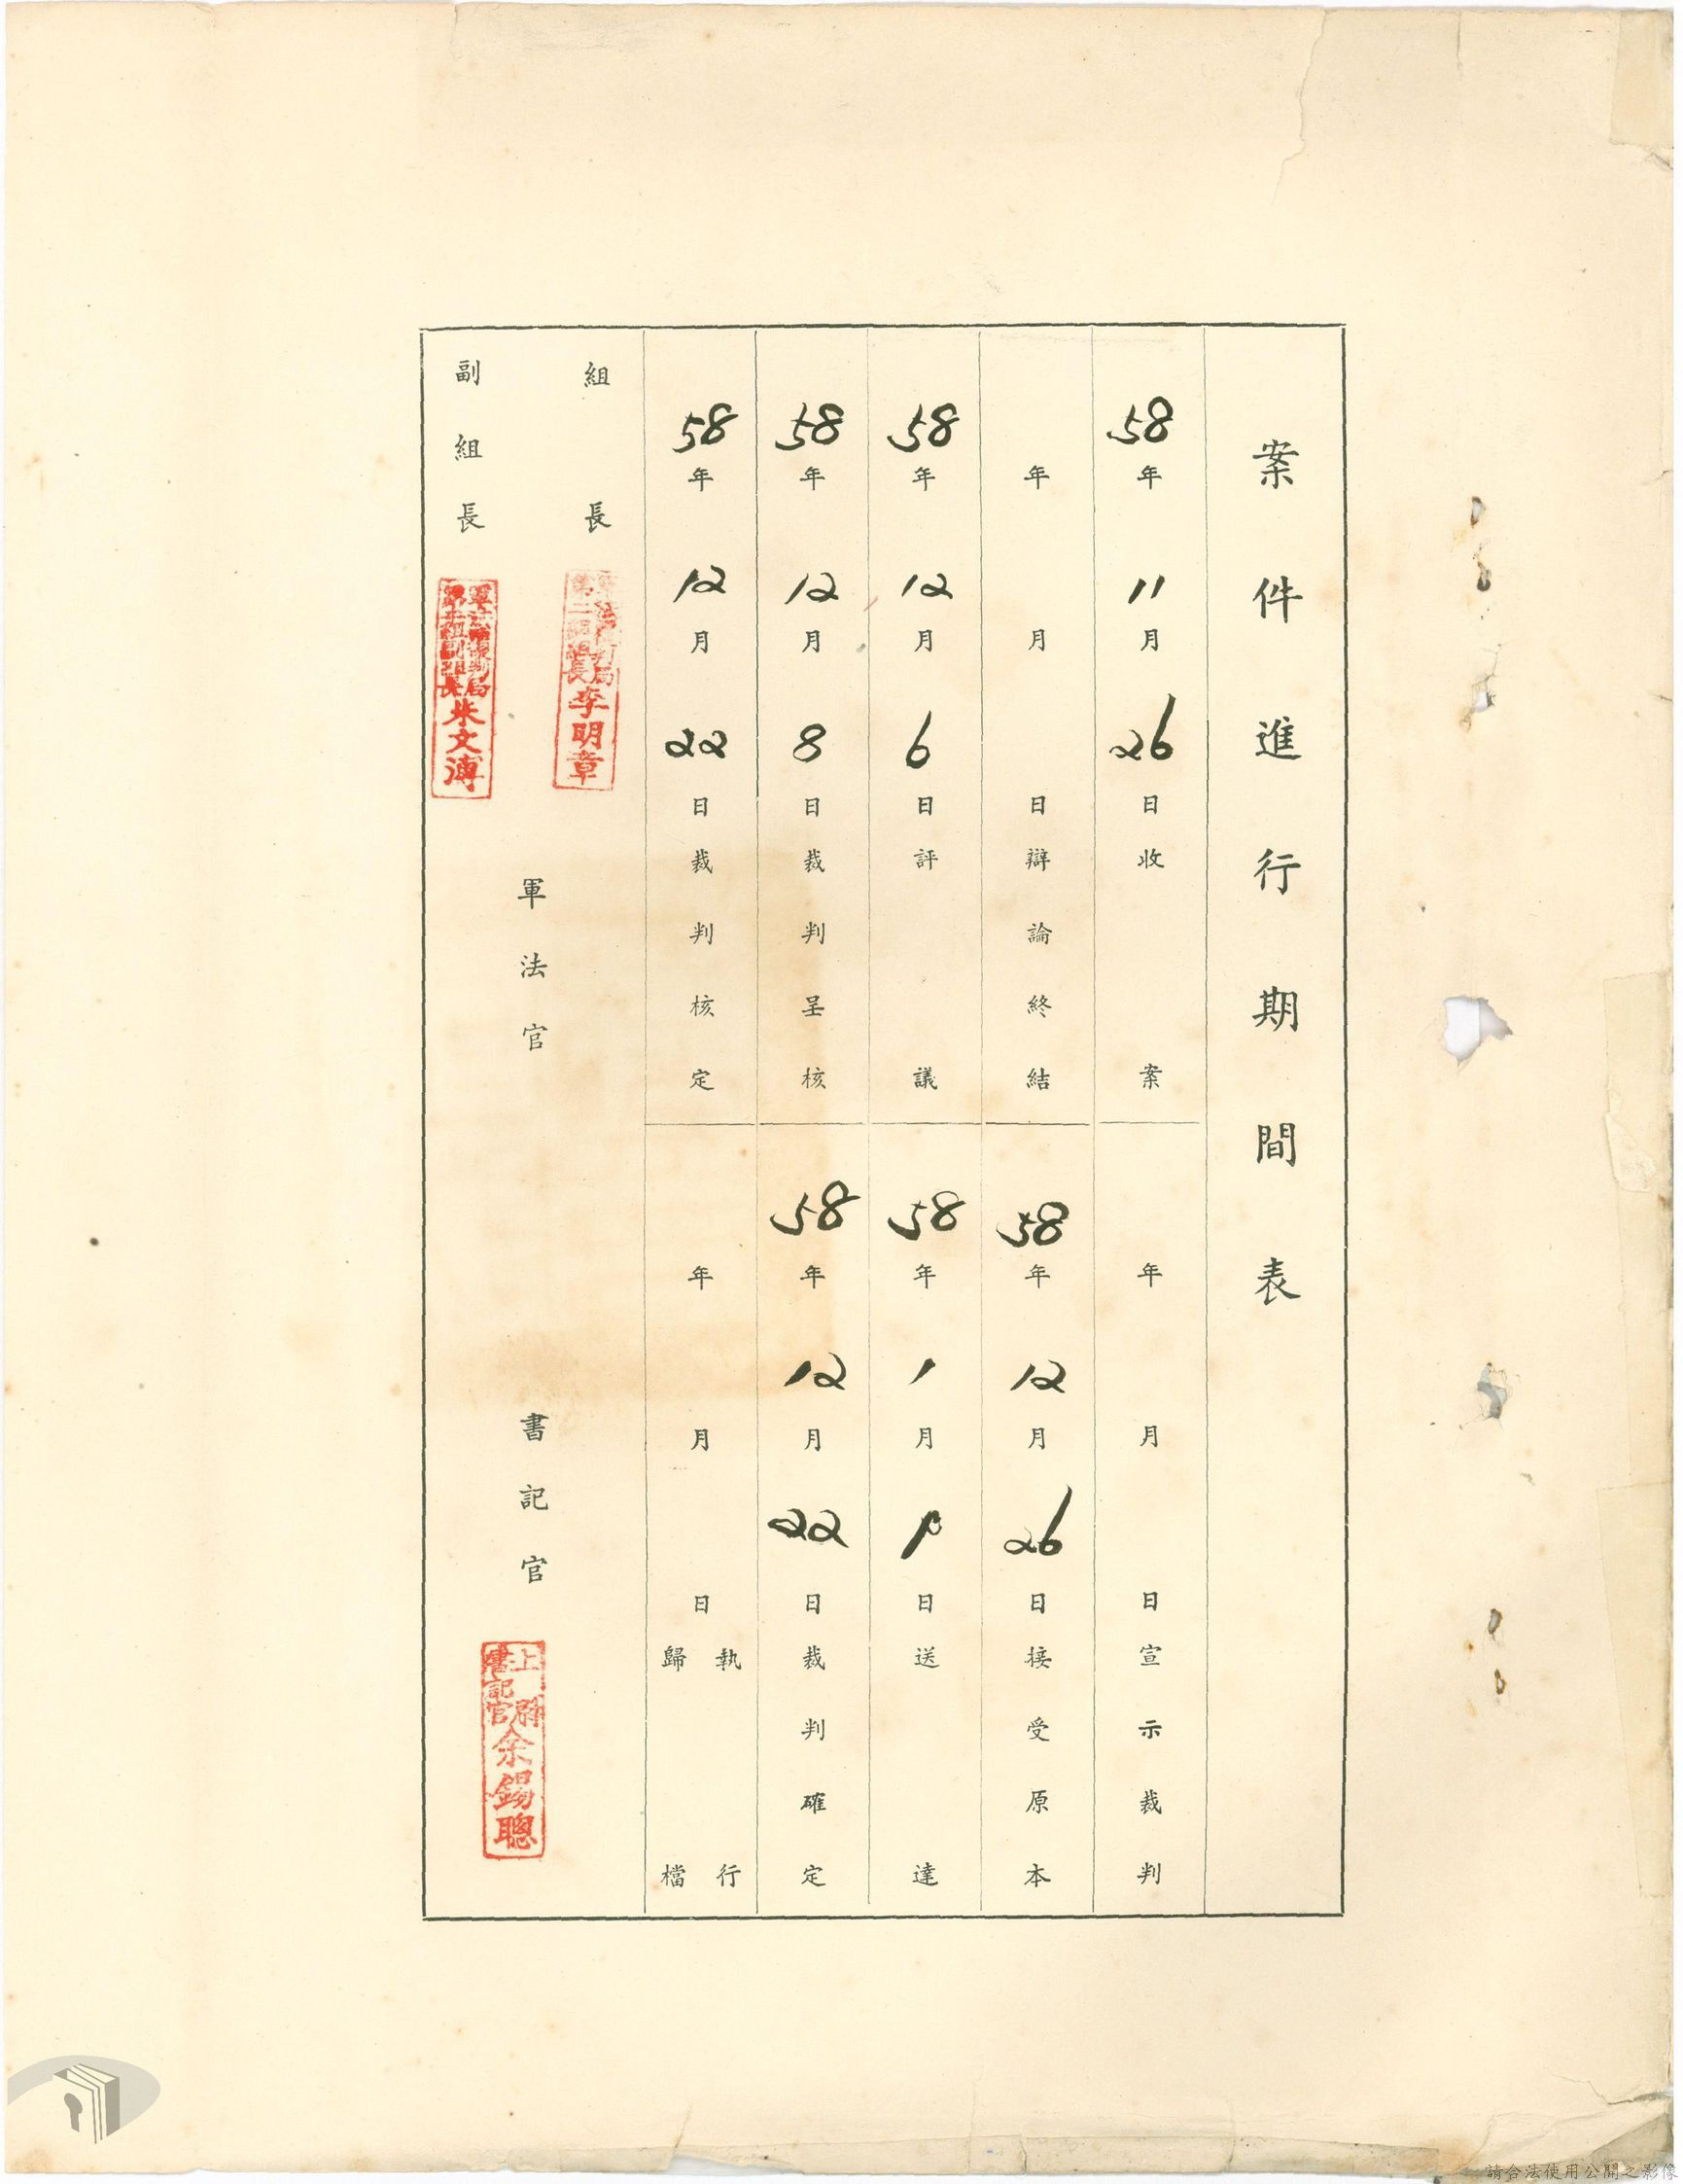 案件進行期間表
58年11月26日收案
年月日宣示裁判
年月日辯論終結
58年12月26日接受原本
58年12月6日評議
58年1月日送達
58年12月8日裁判呈核
58年12月22日裁判確定
58年12月22日裁判核定
年月日執行
歸檔
組長
李明章
副組長
軍法覆判局
朱文溥
軍法官
書記官
上尉
書記官
余錫聰
請合法使用公開之影像